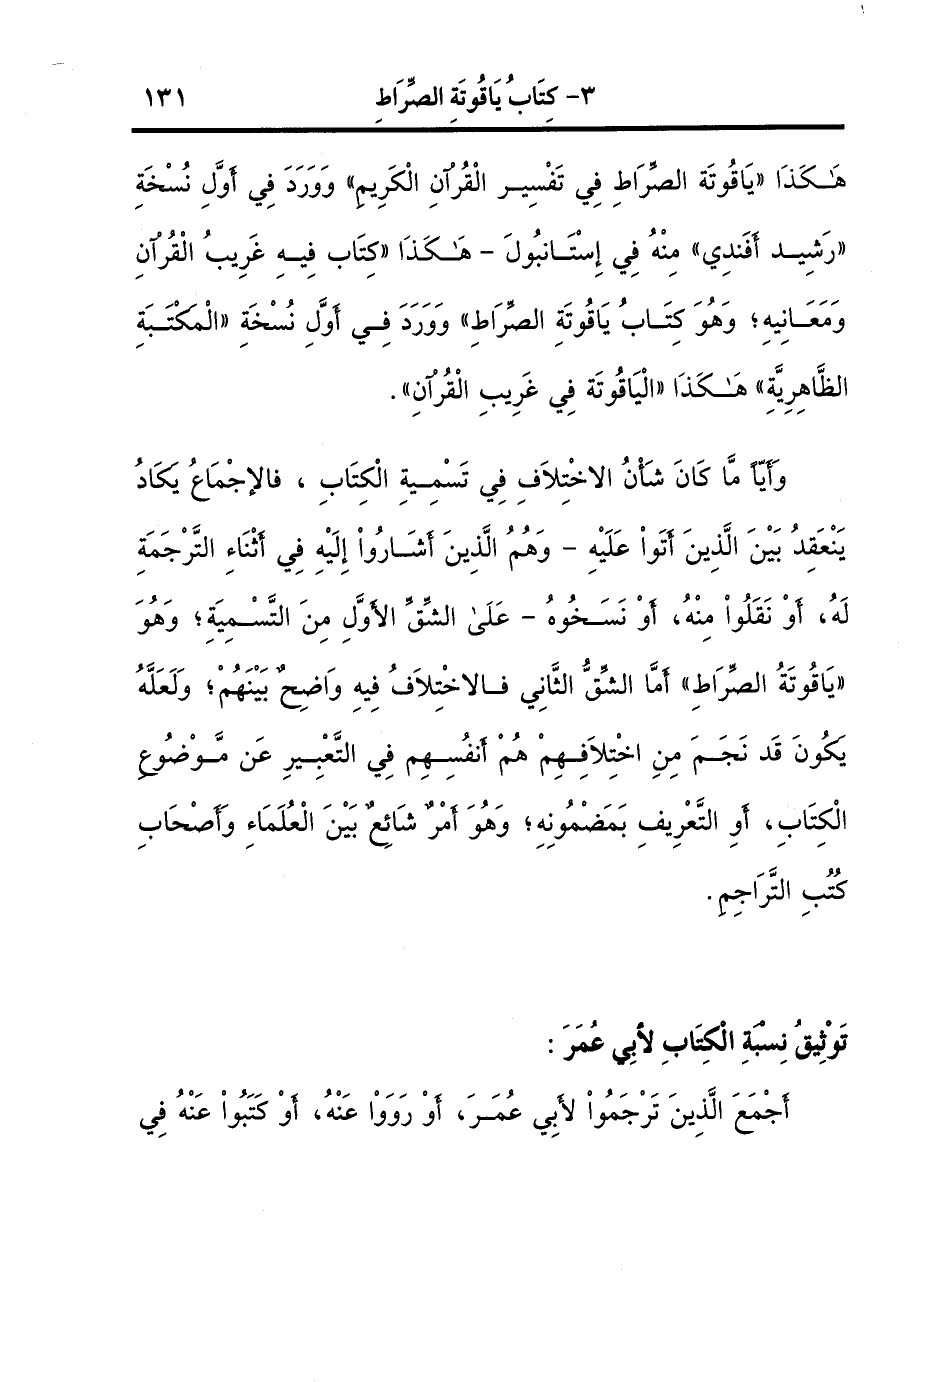 ٣- كِتَابُ يَاقُوتَةِ الصِّرَاطِ ١٣١
هَـٰكَذَا «يَاقُوتَة الصِّرَاطِ فِي تَفْسِيرِ الْقُرْآنِ الْكَرِيمِ» وَوَرَدَ فِي أَوَّلِ نُسْخَةِ
«رَشِيد أَفَنْدِي» مِنْهُ فِي إِسْتَانبُولَ - هَـٰكَذَا «كِتَاب فِيهِ غَرِيبُ الْقُرْآنِ
وَمَعَانِيهِ؛ وَهُوَ كِتَابُ يَاقُوتَةِ الصِّرَاطِ» وَوَرَدَ فِي أَوَّلِ نُسْخَةِ «الْمَكْتَبَةِ
الظَّاهِرِيَّةِ» هَـٰكَذَا «الْيَاقُوتَة فِي غَرِيبِ الْقُرْآنِ».
وَأَيًّا مَّا كَانَ شَأْنُ الاخْتِلَافِ فِي تَسْمِيةِ الْكِتَابِ ، فَالإِجْمَاعُ يَكَادُ
يَنْعَقِدُ بَيْنَ الَّذِينَ أَتَواْ عَلَيْهِ - وَهُمُ الَّذِينَ أَشَارُواْ إِلَيْهِ فِي أَثْنَاءِ التَّرْجَمَةِ
لَهُ، أَوْ نَقَلُواْ مِنْهُ، أَوْ نَسَخُوهُ - عَلَىٰ الشِّقِّ الأَوَّلِ مِنَ التَّسْمِيَةِ؛ وَهُوَ
«يَاقُوتَةُ الصِّرَاطِ» أَمَّا الشِّقُّ الثَّانِي فَالاخْتِلَافُ فِيهِ وَاضِحٌ بَيْنَهُمْ؛ وَلَعَلَّهُ
يَكُونَ قَد نَجَمَ مِنِ اخْتِلَافِهِمْ هُمْ أَنفُسِهِم فِي التَّعْبِيرِ عَن مَّوْضُوعِ
الْكِتَابِ، أَوِ التَّعْرِيفِ بِمَضْمُونِهِ؛ وَهُوَ أَمْرٌ شَائِعٌ بَيْنَ الْعُلَمَاءِ وَأَصْحَابِ
كُتُبِ التَّرَاجِمِ.
تَوْثِيقُ نِسْبَةِ الْكِتَابِ لأَبِي عُمَرَ :
أَجْمَعَ الَّذِينَ تَرْجَمُواْ لأَبِي عُمَرَ، أَوْ رَوَواْ عَنْهُ، أَوْ كَتَبُواْ عَنْهُ فِي